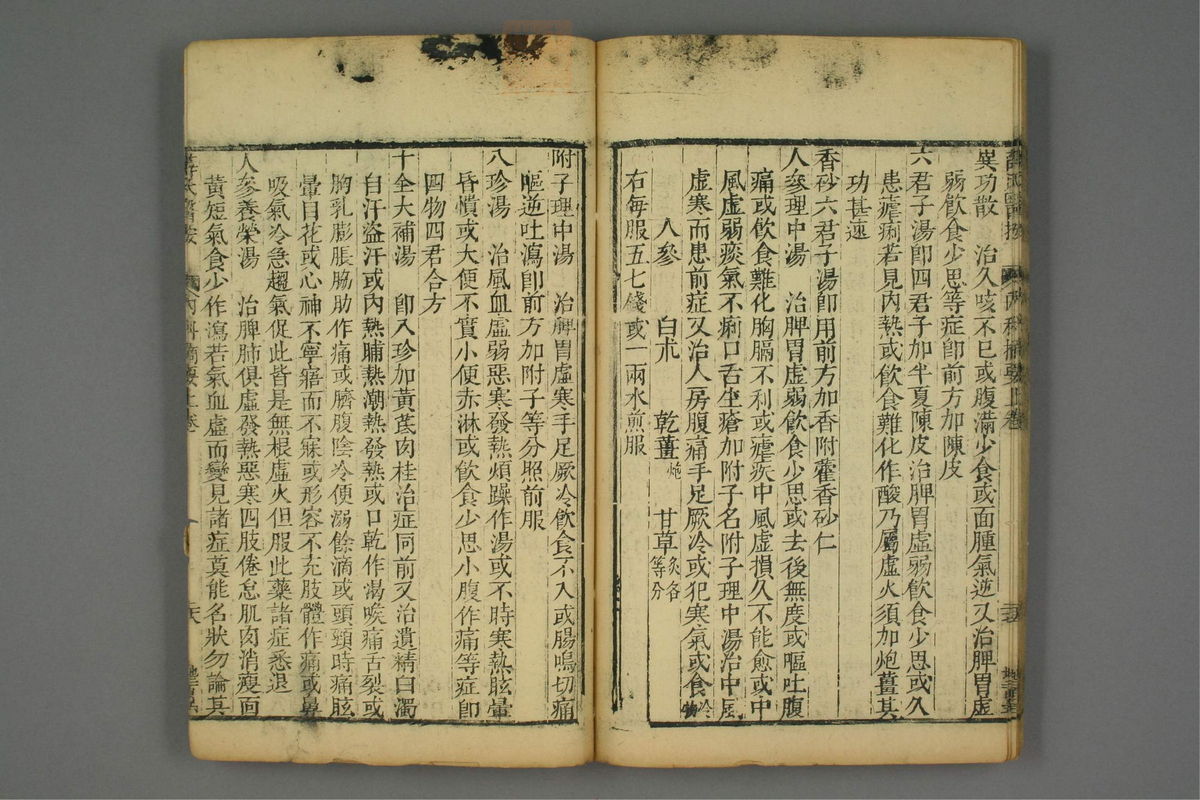 異功散　治久咳不已或腹滿少食或面腫氣逆又治脾胃虛
弱飲食少思等症卽前方加陳皮
六君子湯卽四君子加半夏陳皮治脾胃虛弱飲食少思或久
患瘧痢若見內熱或飲食難化作酸乃屬虛火須加炮薑其
功甚速
香砂六君子湯卽用前方加香附藿香砂仁
人參理中湯　治脾胃虛弱飲食少思或去後無度或嘔吐腹
痛或飲食難化胸膈不利或瘧疾中風虛損久不能愈或中
風虛弱痰氣不痢口舌生瘡加附子名附子理中湯治中風
虛寒而患前症又治人房腹痛手足厥冷或犯寒氣或食冷物
人參　白朮　乾薑炮　甘草炙各等分
右每服五七錢或一兩水煎服
附子理中湯　治脾胃虛寒手足厥冷飲食不入或腸鳴切痛
嘔逆吐瀉卽前方加附子等分照前服
八珍湯　治風血虛弱惡寒發熱煩躁作湯或不時寒熱眩暈
昏憒或大便不實小便赤淋或飲食少思小腹作痛等症卽
四物四君合方
十全大補湯　卽入珍加黃芪肉桂治症同前又治遺精白濁
自汗盜汗或內熱晡熱潮熱發熱或口乾作渴喉痛舌裂或
胸乳膨脹脇肋作痛或臍腹陰冷便溺餘滴或頭頸時痛眩
暈目花或心神不寧寤而不寐或形容不充肢體作痛或鼻
吸氣冷急趨氣促此皆是無根虛火但服此藥諸症悉退
人參養榮湯　治脾肺俱虛發熱惡寒四肢倦怠肌肉消瘦面
黃短氣食少作瀉若氣血虛而變見諸症莫能名狀勿論其